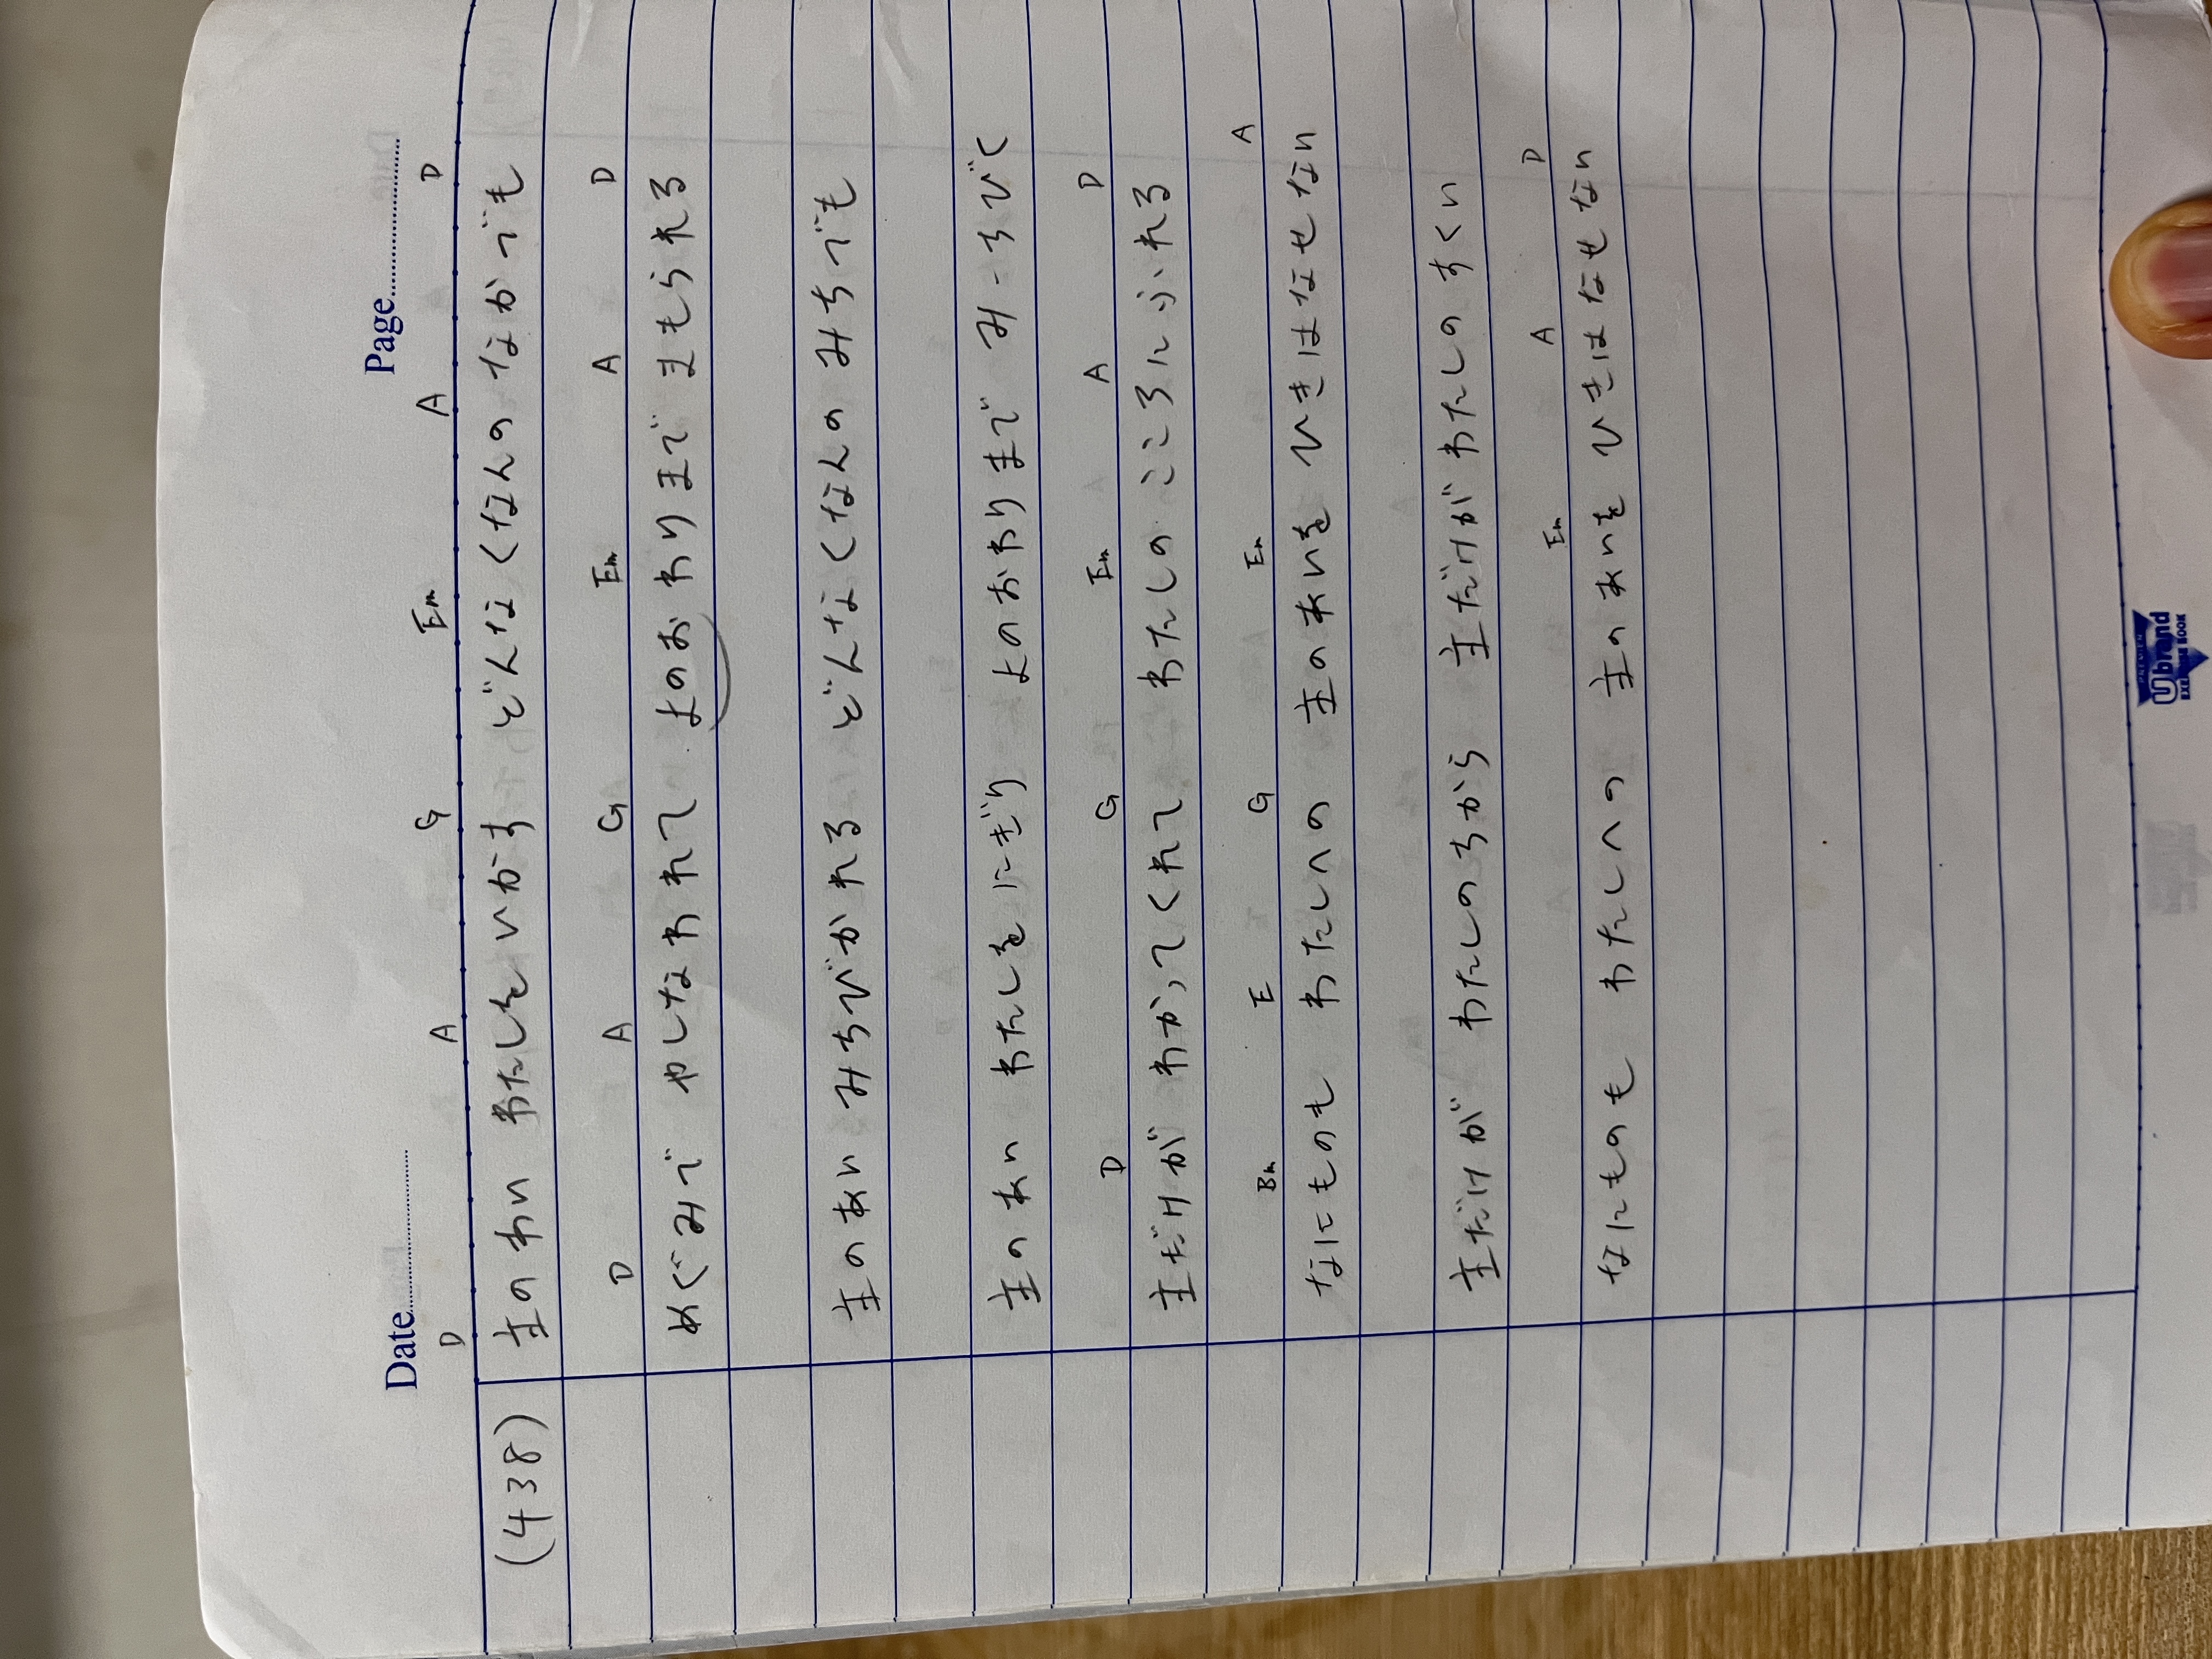 Date Page
D A G Em A D
(438) 主のわい わたしをいかす どんなくなんのなかでも
D A G Em A D
めぐみで やしなわれて よのおわりまで まもられる
主のあい みちびかれる どんなくなんの みちでも
主のあい わたしをにぎり よのおわりまで みーちびく
D G Em A D
主だけが わかってくれて わたしの こころにふれる
Bm E G Em A
なにものも わたしへの 主のあいを ひきはなせない
主だけが わたしのちから 主だけが わたしのすくい
Em A D
なにものも わたしへの 主のあいを ひきはなせない
Ubrand